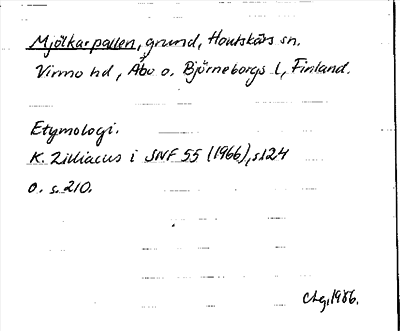 Mjölkarpallen, grund, Houtskärs sn.
Virmo hd, Åbo o. Björneborgs l, Finland.
Etymologi.
K. Zilliacus i SNF 55 (1966), s.124
o. s.210.
1986.